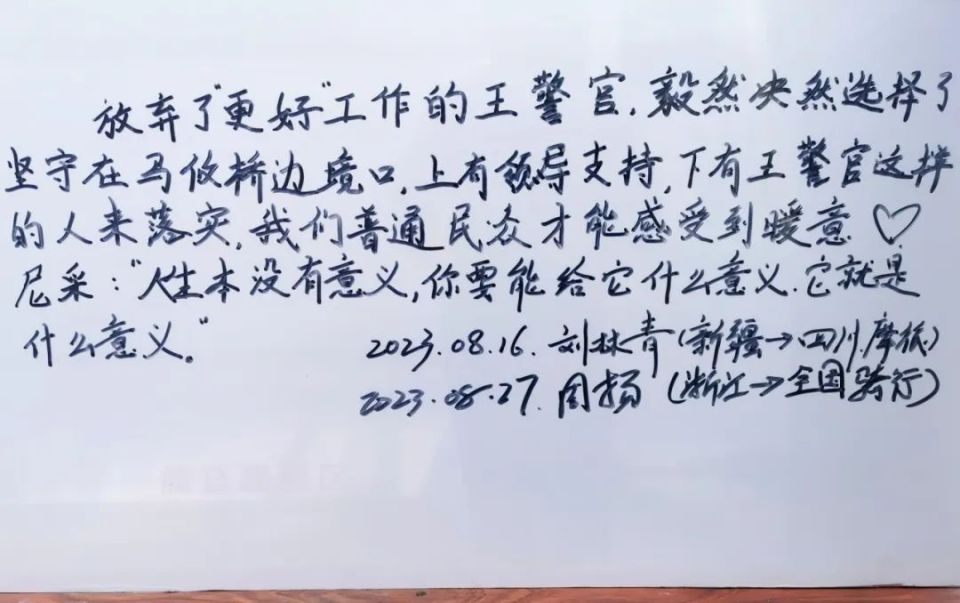 放弃了"更好"工作的王警官,毅然决然选择了
坚守在马攸桥边境口,上有领导支持,下有王警官这样
的人来落实,我们普通民众才能感受到暖意♡
尼采:"人生本没有意义,你要能给它什么意义.它就是
什么意义。"
2023.08.16.刘林青(新疆→四川.摩旅)
2023.08.27.周扬(浙江→全国骑行)